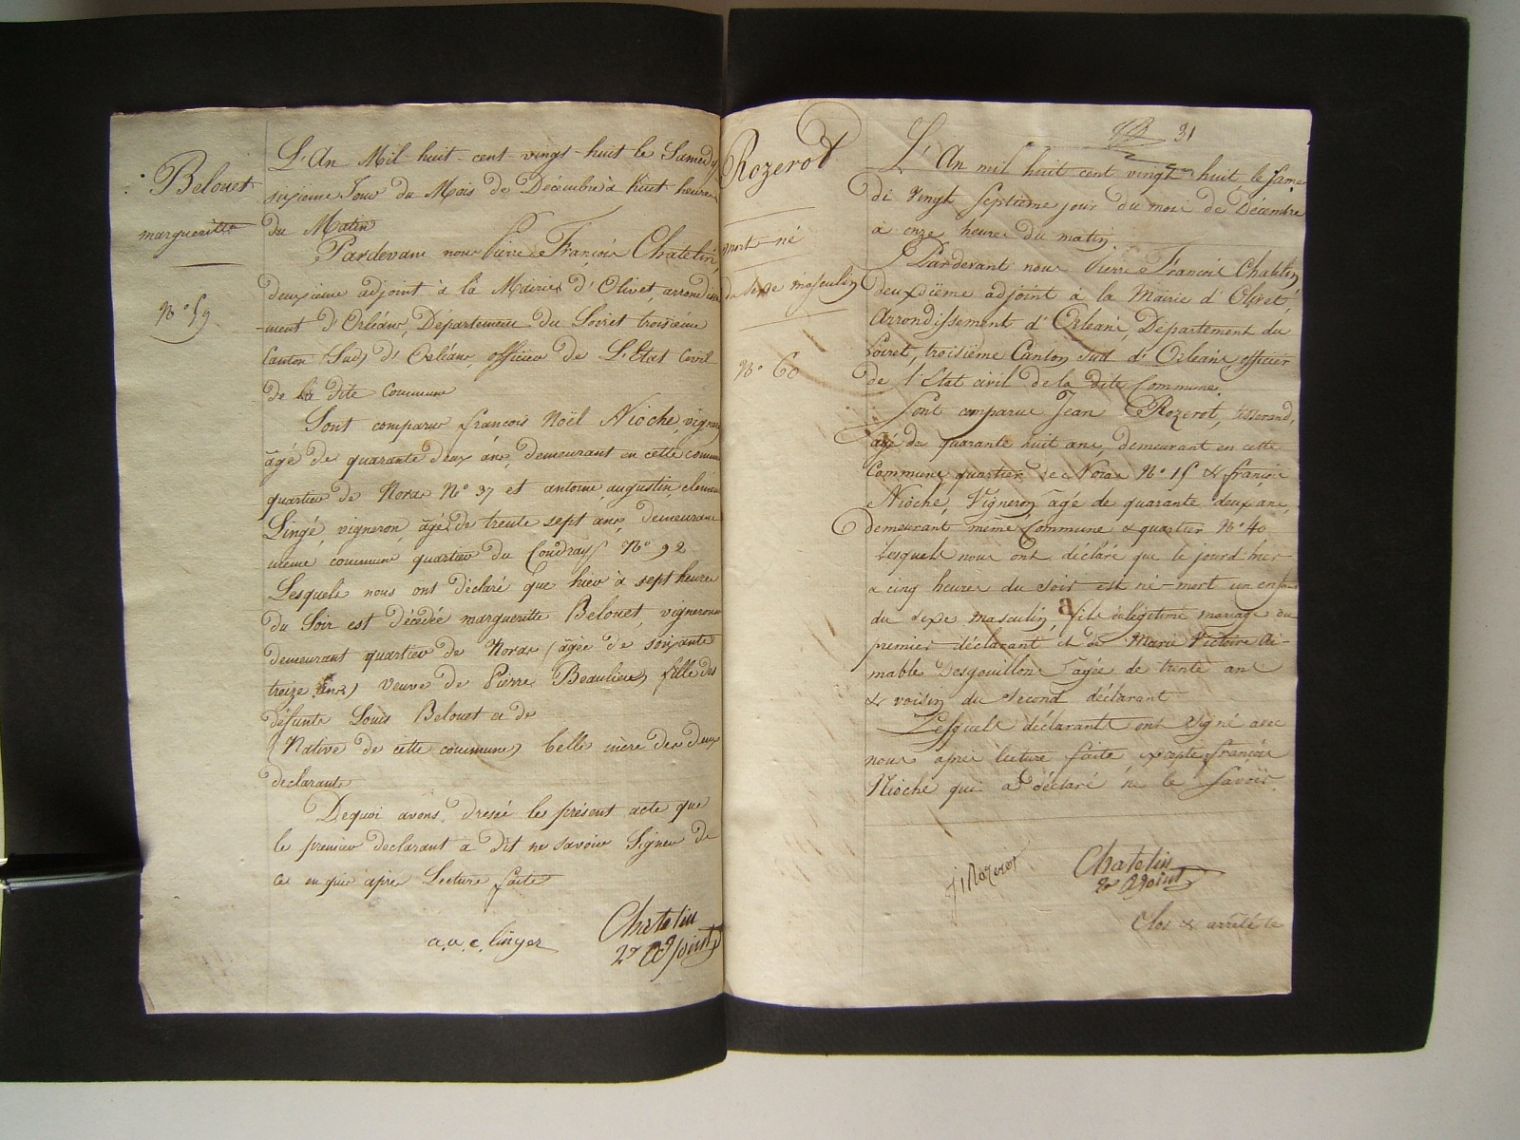 Belouet
margueritte
N° 59
L'An Mil huit-cent-vingt-huit le Samedy
sixieme Jour du Mois de Decembre à huit heures
du Matin
Pardevant nous Pierre François Chatelin,
deuxieme adjoint à la Mairie d'Olivet, arrondisse
-ment d'Orléans, Département du Loiret troisieme
Canton (Sud) d'Orléans, officier de L'Etat Civil
de la dite Commune
Sont comparus françois Noël Nioche, vigneron
âgé de quarante deux ans, demeurant en cette commune
quartier de Noras N° 37 et antoine, augustin, clément
Lingé, vigneron, âgé de trente sept ans, demeurant
même commune quartier du Coudray N° 92
Lesquels nous ont déclaré que hier à sept heures
du Soir est décédée margueritte Belouet, vigneronne
demeurant quartier de Noras (âgée de soixante
treize ans) veuve de Pierre Beaulieu, fille des
défunts Louis Belouet et de
(Native de cette commune) belle mère des deux
declarants
Dequoi avons dressé le présent acte que
le premier declarant a dit ne savoir Signer de
ce enquis après Lecture faite
a. a. c. linger
Chatelin
2e Adjoint
31
Rozerot
mort-né
du Sexe masculin
N° 60
L'An mil huit cent vingt huit, le same
di vingt septième jour du mois de Décembre
à onze heures du matin.
Pardevant nous Pierre François Chatelin
deuxième adjoint à la Mairie d'Olivet,
Arrondissement d'Orléans, Département du
Loiret, troisième Canton Sud d'Orléans, officier
de l'Etat civil de la dite Commune.
Sont comparus Jean Rozerot, tisserand,
âgé de quarante huit ans, demeurant en cette
Commune quartier de Noras N° 15 & françois
Nioche, Vigneron, âgé de quarante deux ans,
demeurant même Commune & quartier N° 40
Lesquels nous ont déclaré que le jourd'hier
a cinq heures du soir est né-mort un enfant
du sexe masculin, fils en légitime mariage du
premier déclarant et de Marie Victoire Ai-
mable Desgouillons âgée de trente ans
& voisin du second déclarant
Lesquels déclarants ont signé avec
nous après lecture faite, excepté françois
Nioche qui a déclaré ne le savoir.
J. Rozerot
Chatelin
2e Adjoint
Clos & arrêté le